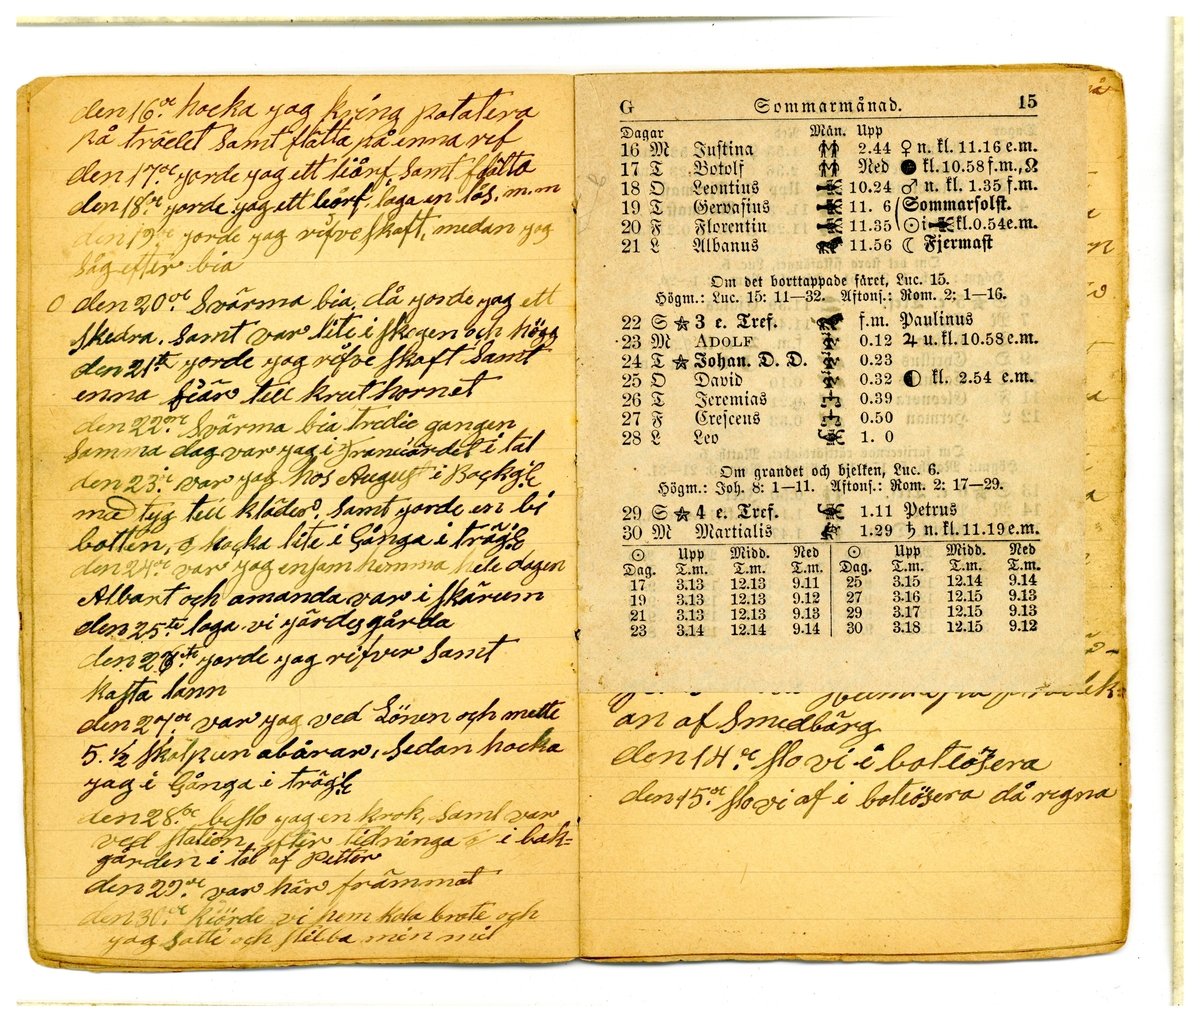 den 16.de hacka yag kring potatera
på trädet samt flätta på enna ref
den 17.de yorde yag ett liörf samt flätta
den 18.de yorde yag ett leörf, laga en lås, m.m
den 19.de yorde yag räfveskaft, medan yag
såg efter bia
0 den 20.de Svärma bia, då yorde yag ett
skedra, samt var lite i skogen och högg
den 21te yorde yag räfve skaft samt
enna fiär till krutkornet
den 22.dre Svärma bia tredie gangen
samma dag var yag i Franciärdet i tal
den 23.de var yag hos August i Backg:
med tyg till kläder, samt yorde en bi
botten, o hacka lite i Gånga i träg:
den 24.de var yag ensam hemma hele dagen
Albart och amanda var i Skärum
den 25.te laga vi yärdesgårda
den 26.te yorde yag rifver samt
kasta lann
den 27.de var yag ved Sönen och mette
5. ½ skolpun abårar, sedan hacka
yag i Gånga i träg:
den 28.de beslo yag en krok, samt var
ved station, efter tidninga o i bak=
gården i tal af Petter
den 29.de var här främmat
den 30.de kiörde vi hem kola brote och
yag satte och stilba min mil
G Sommarmånad. 15
Dagar Mån. Upp
16 M Justina 2.44 ♀ n. kl. 11.16 e.m.
17 T Botolf Ned ● kl. 10.58 f.m., ☊
18 O Leontius 10.24 ♂ n. kl. 1.35 f.m.
19 T Gervasius 11. 6 (Sommarsolst.
20 F Florentin 11.35 (☉ i kl. 0.54 e.m.
21 L Albanus 11.56 ☾ Fjermast
Om det borttappade fåret, Luc. 15.
Högm.: Luc. 15: 11—32. Aftons.: Rom. 2; 1—16.
22 S ☆ 3 e. Tref. f.m. Paulinus
23 M ADOLF 0.12 ♃ u. kl. 10.58 e.m.
24 T ☆ Johan. D. D. 0.23
25 O David 0.32 ◐ kl. 2.54 e.m.
26 T Jeremias 0.39
27 F Crescens 0.50
28 L Leo 1. 0
Om grandet och bjelken, Luc. 6.
Högm.: Joh. 8: 1—11. Aftons.: Rom. 2: 17—29.
29 S ☆ 4 e. Tref. 1.11 Petrus
30 M Martialis 1.29 ♄ n. kl. 11.19 e.m.
☉ Upp Midd. Ned ☉ Upp Midd. Ned
Dag. T.m. T.m. T.m. Dag. T.m. T.m. T.m.
17 3.13 12.13 9.11 25 3.15 12.14 9.14
19 3.13 12.13 9.12 27 3.16 12.15 9.13
21 3.13 12.13 9.13 29 3.17 12.15 9.13
23 3.14 12.14 9.14 30 3.18 12.15 9.12
an af Smedbärg
den 14.de slo vi i botiösera
den 15.de slo vi af i botiösera då regna